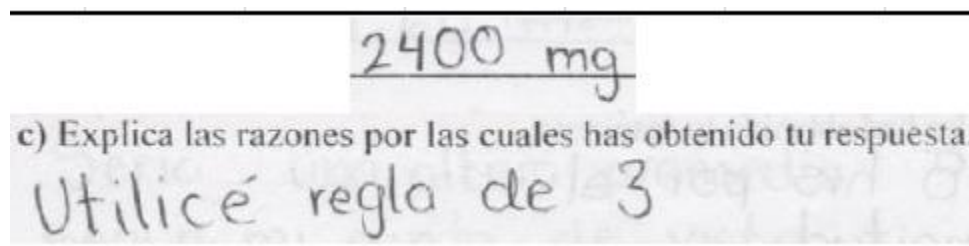 2400 mg
c) Explica las razones por las cuales has obtenido tu respuesta
Utilicé regla de 3